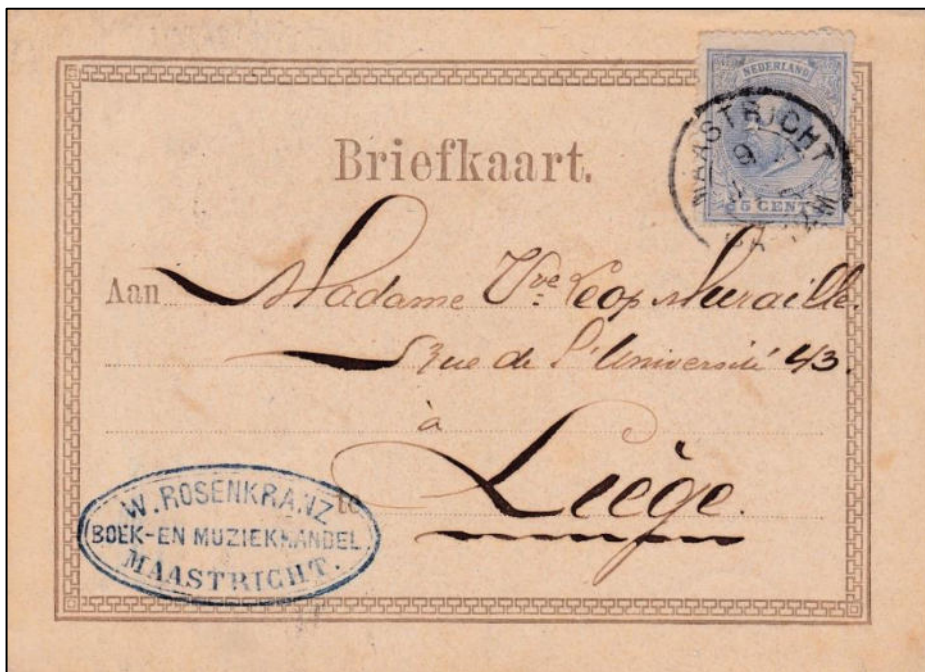 NEDERLAND
5 CENT
MAASTRICHT
Briefkaart.
Aan Madame Vve Leop Muraille.
rue de l'Université 43.
à
te Liège.
W. ROSENKRANZ
BOEK-EN MUZIEKHANDEL
MAASTRICHT.